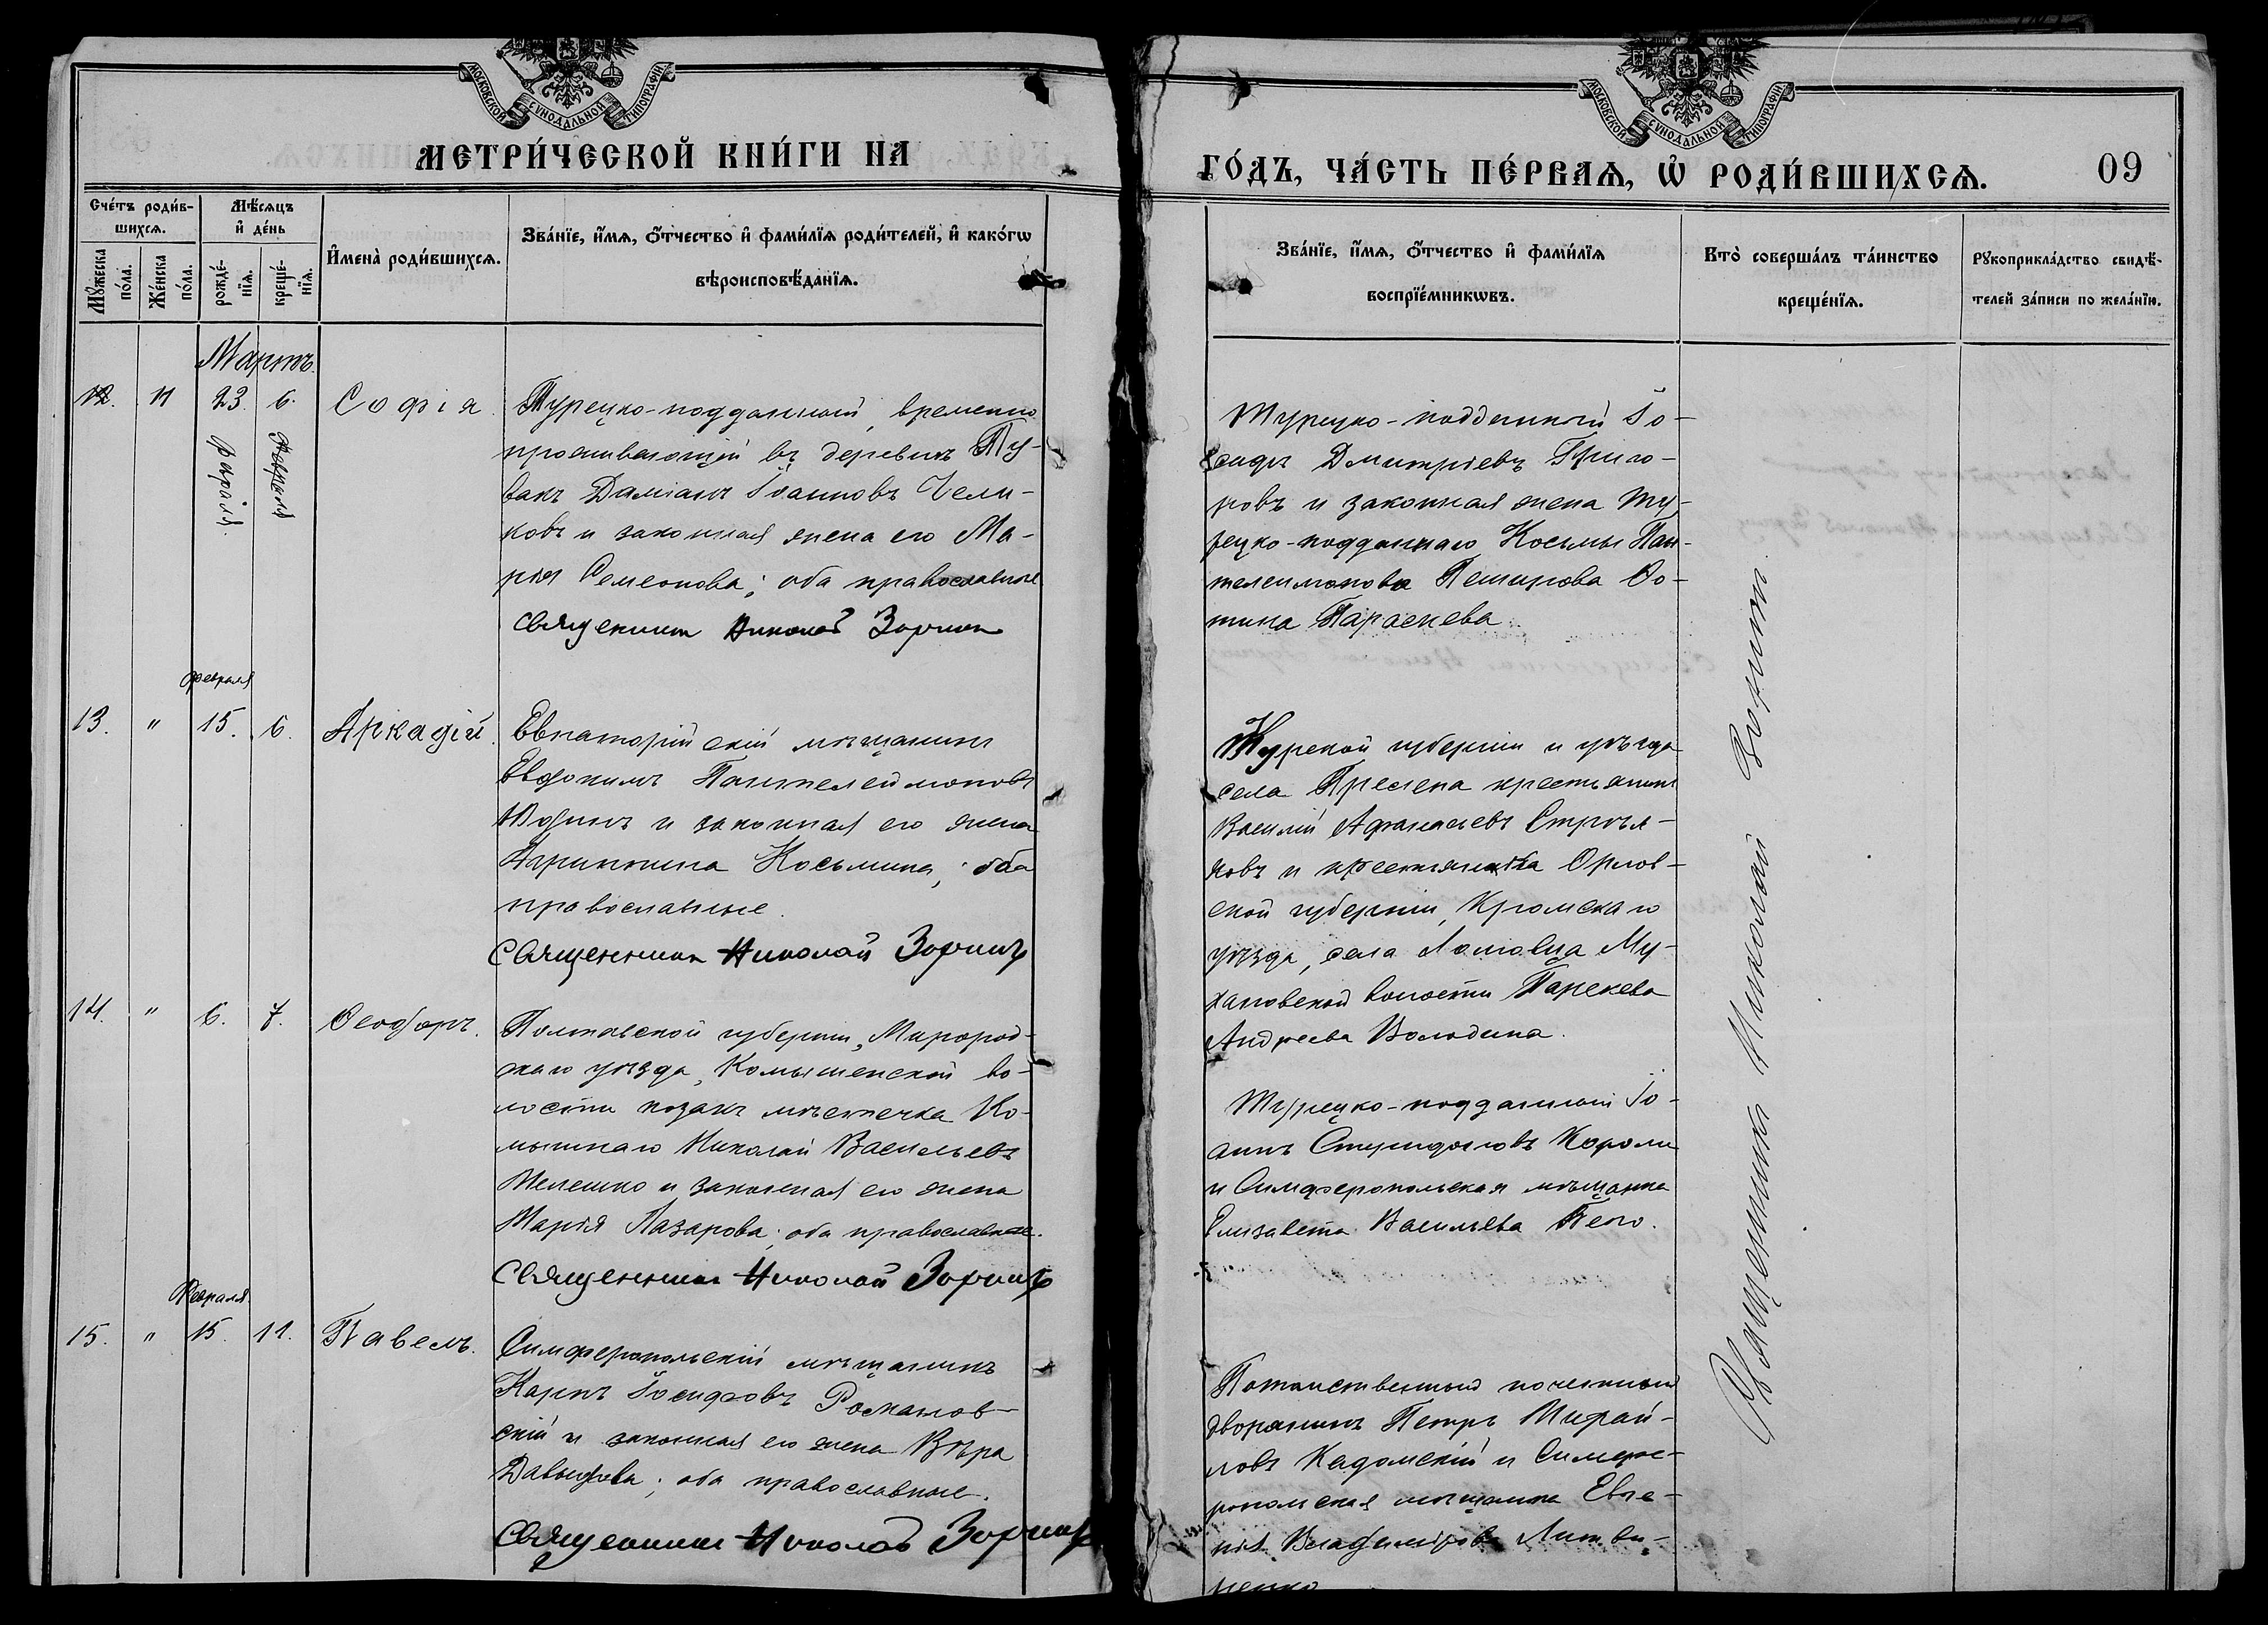 МОСКОВСКОЙ СѴНОДАЛЬНОЙ ТИПОГРАФІИ
МЕТРИ́ЧЕСКОЙ КНИ́ГИ НА
Сче́тъ роди́в-
шихсѧ.
Мѣ́сѧцъ
и҆ де́нь
Мꙋ́жеска
по́ла.
Же́нска
по́ла.
рожде́-
нїѧ.
креще́-
нїѧ.
И҆мена̀ роди́вшихсѧ.
Зва́нїе, и҆́мѧ, ѻ҆́тчество и҆ фами́лїѧ роди́телей, и҆ како́гѡ
вѣроисповѣ́данїѧ.
Мартъ.
12. 11 23. 6. Софія.
февраля
Турецко-подданный, временно
проживающій въ деревнѣ Ту-
вакъ Даміанъ Іоанновъ Чели-
ковъ и законная жена его Ма-
рія Семенова; оба православные
Священникъ Николай Зоринъ
февраля
13. " 15. 6. Аркадій.
Евпаторійскій мѣщанинъ
Евдокимъ Пантелеймоновъ
Юдинъ и законная его жена
Агрипина Косьмина; оба
православные.
Священникъ Николай Зоринъ
14. " 6. 7. Ѳеодоръ.
Полтавской губерніи, Миргород-
скаго уѣзда, Комышенской во-
лости козакъ мѣстечка Ко-
мышнаго Николай Васильевъ
Мелешко и законная его жена
Марія Лазарова; оба православные.
Священникъ Николай Зоринъ
Февраля
15. " 15. 11. Павелъ.
Симферопольскій мѣщанинъ
Карпъ Іосифовъ Романов-
скій и законная его жена Вѣра
Давыдова; оба православные.
Священникъ Николай Зоринъ
МОСКОВСКОЙ СѴНОДАЛЬНОЙ ТИПОГРАФІИ
ГО́ДЪ, ЧА́СТЬ ПЕ́РВАѦ, Ѡ҆ РОДИ́ВШИХСѦ.
09
Зва́нїе, и҆́мѧ, ѻ҆́тчество и҆ фами́лїѧ
воспрїе́мникѡвъ.
Кто̀ соверша́лъ та́инство
креще́нїѧ.
Рꙋкоприкла́дство свидѣ́-
телей за́писи по жела́нїю.
Турецко-подданный Іо-
сифъ Дмитріевъ Григо-
ровъ и законная жена Ту-
рецко-подданнаго Косьмы Пан-
телеимонова Фо-
тина Параскева
Курской губерніи и уѣзда
села крестьянинъ
Василій Афанасьевъ Стрѣл-
ковъ и крестьянка Орлов-
ской губерніи, Кромскаго
уѣзда, села Ломовца Му-
хановской волости Параскева
Андреева Володина.
Турецко-подданный Іо-
аннъ Короли
и Симферопольская мѣщанка
Елизавета Васильева
Потомственный почетный
дворянинъ Петръ Михай-
ловъ Кадомскій и Симфе-
ропольская мѣщанка Евге-
нія Владимірова Литви-
ненко
Священникъ Николай Зоринъ